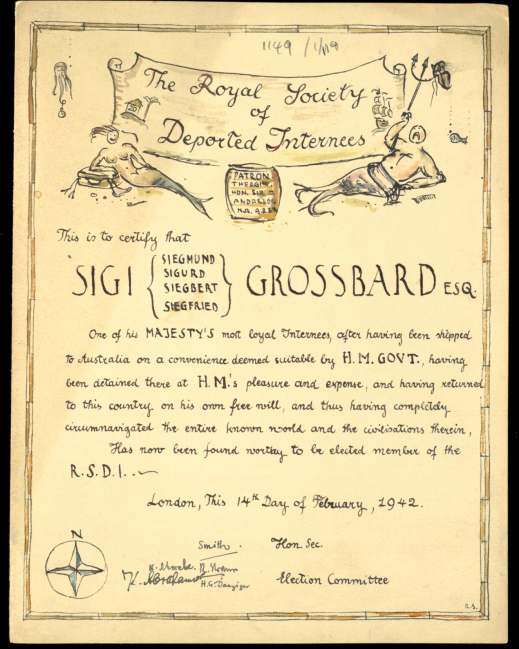 1149 /1/119
The Royal Society
of
Deported Internees
PATRON
THE RGHT.
HON. SIR J.
ANDERSON
M.A.
This is to certify that
SIGI { SIEGMUND
SIGURD
SIEGBERT
SIEGFRIED } GROSSBARD ESQ.
One of his MAJESTY'S most loyal Internees, after having been shipped
to Australia on a convenience deemed suitable by H.M. GOVT., having
been detained there at H.M.'s pleasure and expense, and having returned
to this country on his own free will, and thus having completely
circumnavigated the entire known world and the civilisations therein,
Has now been found worthy to be elected member of the
R.S.D.I..
London, This 14th Day of February, 1942.
N
Smith. Hon. Sec.
H.G. Danziger
Election Committee